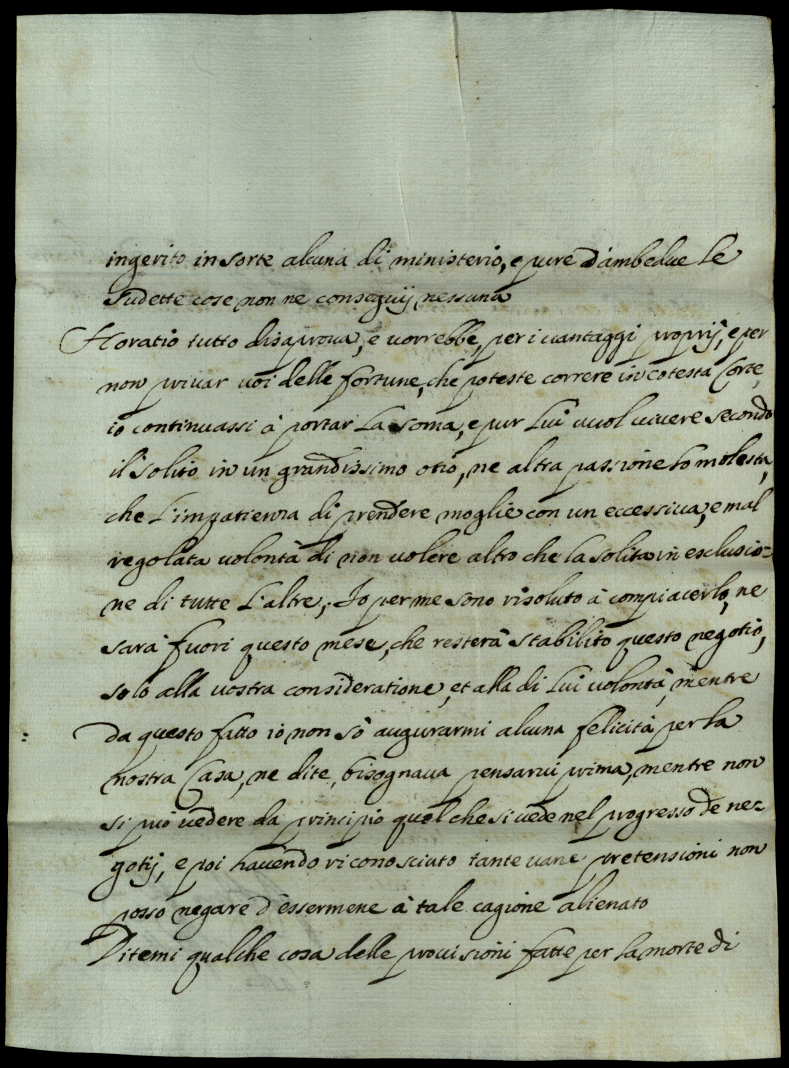 ingerito in sorte alcuna di ministerio, e pure d'ambedue le
sudette cose non ne conseguij nessuna
Horatio tutto disaprova, e vorrebbe, per i vantaggi proprij, e per
non privar voi delle fortune, che poteste correre in cotesta Corte,
io continuassi à portar la soma, e pur lui vuol vivere secondo
il solito in un grandissimo otio, ne altra passione lo molesta,
che l'impatienza di prendere moglie con un eccessiva, e mal
regolata volontà di non volere altro che la solita in esclusio=
ne di tutte l'altre, Io per me sono risoluto à compiacerlo, ne
sarà fuori questo mese, che resterà stabilito questo negotio,
solo alla vostra consideratione, et alla di lui volontà, mentre
da questo fatto io non sò augurarmi alcuna felicità per la
nostra Casa, ne dite, bisognava pensarvi prima, mentre non
si può vedere da principio quel che si vede nel progresso de ne=
gotij, e poi havendo riconosciuto tante vane pretensioni non
posso negare d'essermene à tale cagione alienato
Ditemi qualche cosa delle provisioni fatte per la morte di